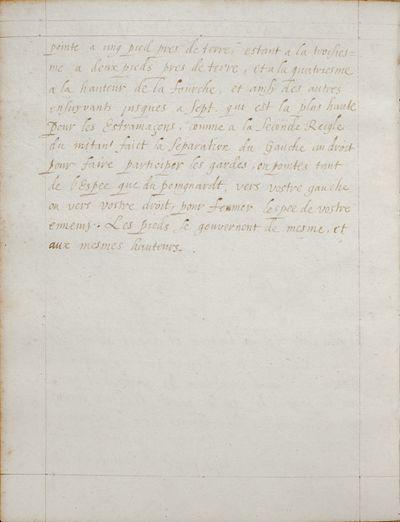 pointe a ung pied pres de terre, estant a la troisies=
me a deux pieds pres de terre, Et a la quatriesme
a la hauteur de la fourche, et ainsi des autres
ensuyvants jusques a sept. qui est la plus haute
Pour les Estramaçons, comme a la Seconde Reigle
du mitant faict la Separation du Gauche au droit
pour faire participer les gardes, ou pointes tant
de l'Espee que du poingnardt, vers vostre gauche
ou vers vostre droit, pour fermer lespee de vostre
ennemi. Les pieds se gouvernent de mesme, et
aux mesmes hauteurs.